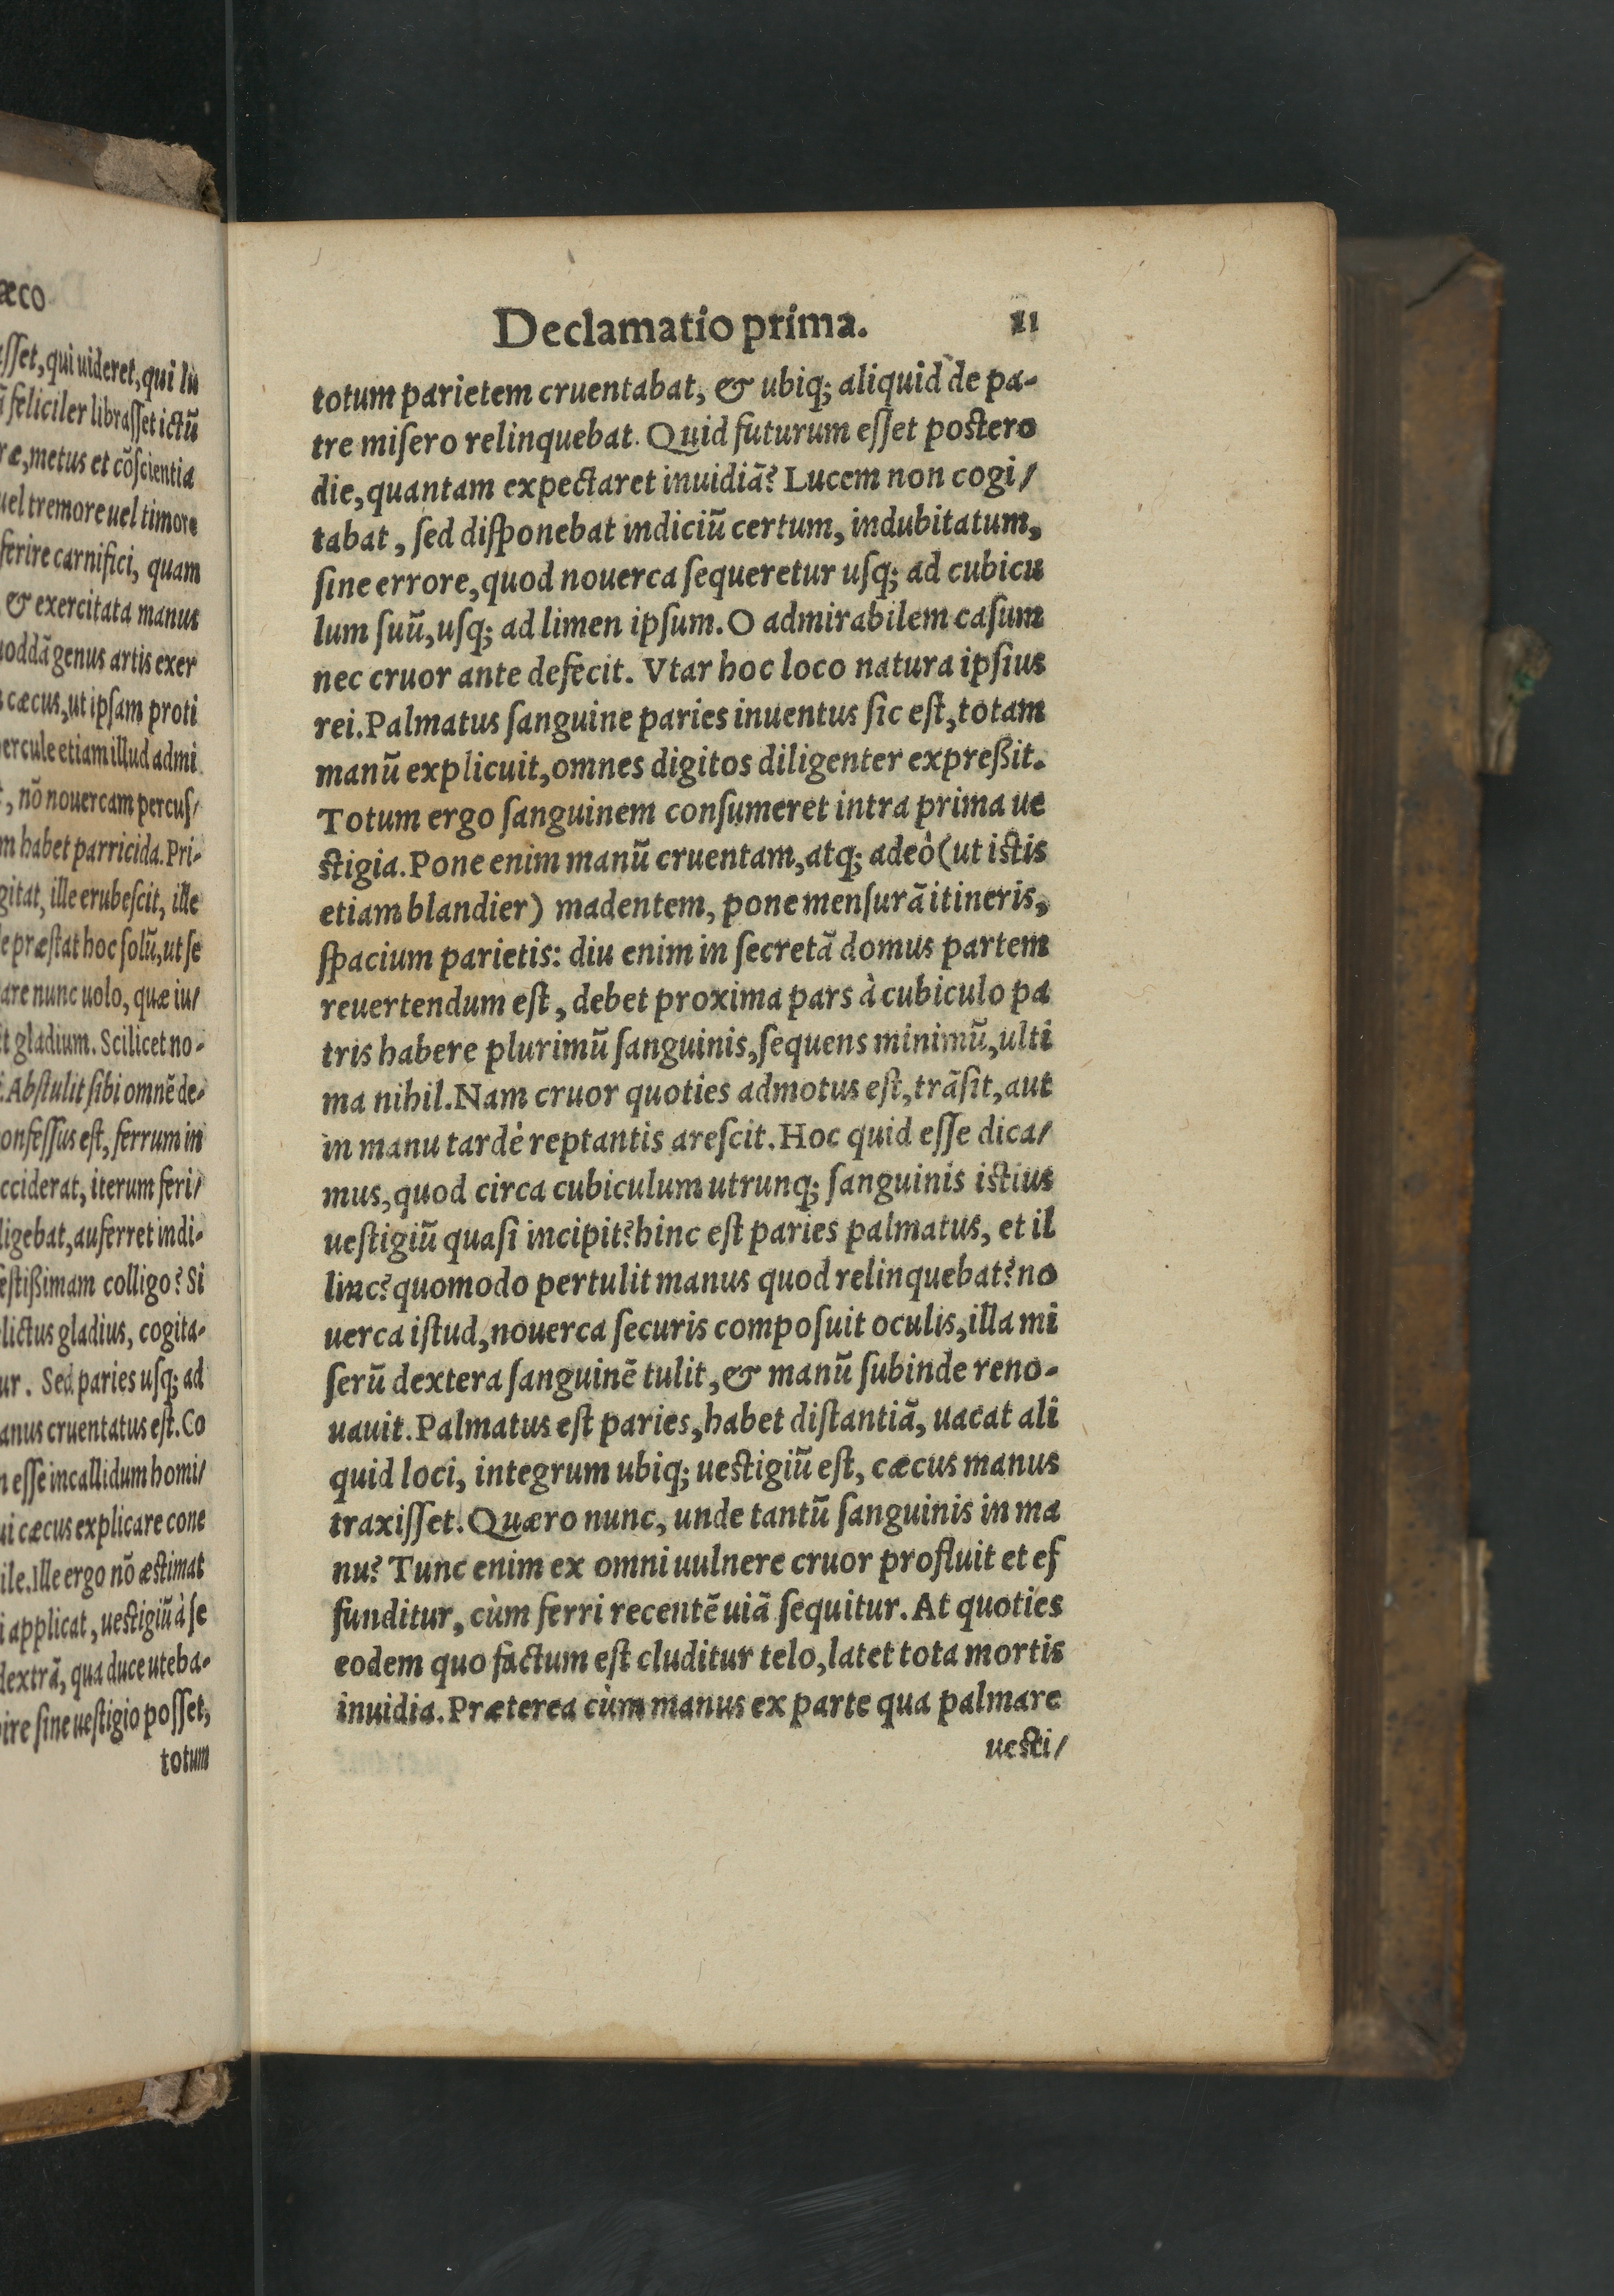 æco
esset, qui uideret, qui lu
feliciler librasset ictũ
metus et cõscientia
uel tremore uel timore
ferire carnifici, quam
& exercitata manus
genus artis exer
cæcus, ut ipsam proti
etiam illud admi
, nõ nouercam percus/
habet parricida. Pri-
ille erubescit, ille
præstat hoc solũ, ut se
nunc uolo, quæ iu/
gladium. Scilicet no-
. Abstulit sibi omnẽ de-
est, ferrum in
iterum feri/
auferret indi-
colligo? Si
gladius, cogita-
. Sed paries usq; ad
cruentatus est. Co
esse incallidum homi/
cæcus explicare cone
. Ille ergo nõ æstimat
applicat, uestigiũ à se
dextrã, qua duce uteba-
sine uestigio posset,
totum
Declamatio prima. 11
totum parietem cruentabat, & ubiq; aliquid de pa-
tre misero relinquebat. Quid futurum esset postero
die, quantam expectaret inuidiã? Lucem non cogi/
tabat, sed disponebat indiciũ certum, indubitatum,
sine errore, quod nouerca sequeretur usq; ad cubicu
lum suũ, usq; ad limen ipsum. O admirabilem casum
nec cruor ante defecit. Vtar hoc loco natura ipsius
rei. Palmatus sanguine paries inuentus sic est, totam
manũ explicuit, omnes digitos diligenter expreßit.
Totum ergo sanguinem consumeret intra prima ue
stigia. Pone enim manũ cruentam, atq; adeò (ut istis
etiam blandier) madentem, pone mensurã itineris,
spacium parietis: diu enim in secretã domus partem
reuertendum est, debet proxima pars à cubiculo pa
tris habere plurimũ sanguinis, sequens minimũ, ulti
ma nihil. Nam cruor quoties admotus est, trãsit, aut
in manu tardè reptantis arescit. Hoc quid esse dica/
mus, quod circa cubiculum utrunq; sanguinis istius
uestigiũ quasi incipit? hinc est paries palmatus, et il
linc? quomodo pertulit manus quod relinquebat? no
uerca istud, nouerca securis composuit oculis, illa mi
serũ dextera sanguinẽ tulit, & manũ subinde reno-
uauit. Palmatus est paries, habet distantiã, uacat ali
quid loci, integrum ubiq; uestigiũ est, cæcus manus
traxisset. Quæro nunc, unde tantũ sanguinis in ma
nu? Tunc enim ex omni uulnere cruor profluit et ef
funditur, cùm ferri recentẽ uiã sequitur. At quoties
eodem quo factum est cluditur telo, latet tota mortis
inuidia. Præterea cùm manus ex parte qua palmare
uesti/